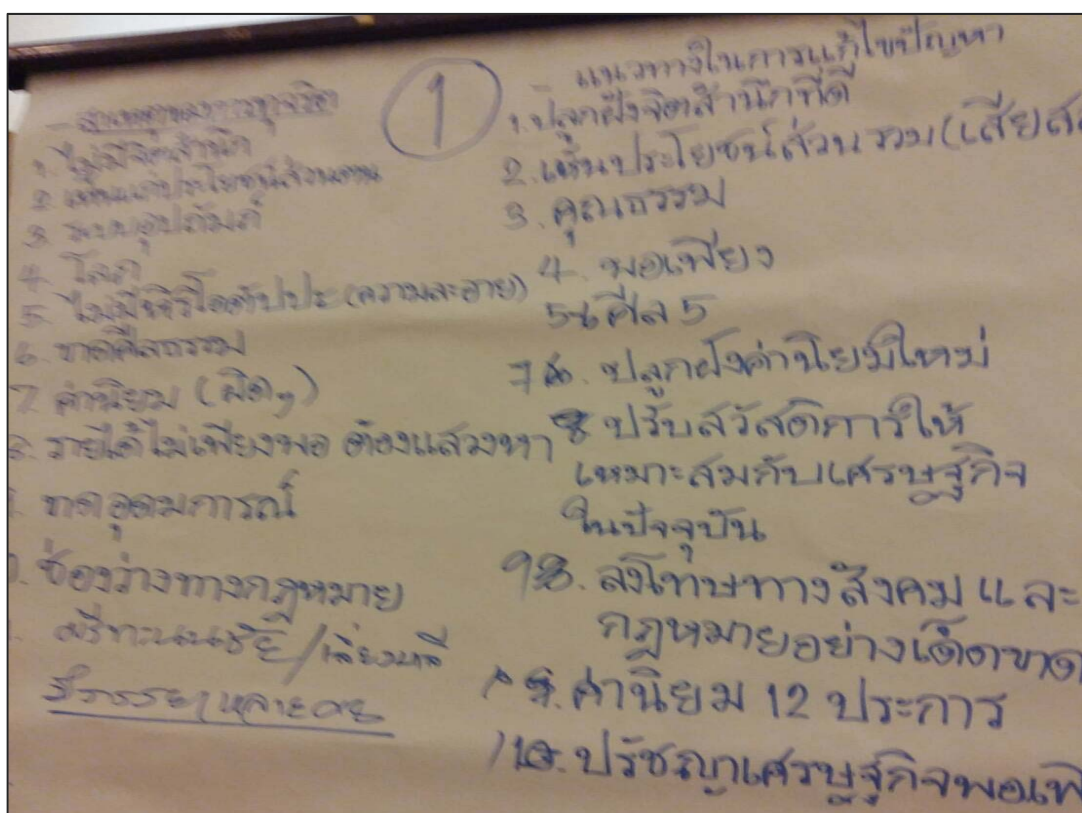 สาเหตุของการทุจริต
1. ไม่มีจิตสำนึก
2. เห็นแก่ประโยชน์ส่วนตน
3. ระบบอุปถัมภ์
4. โลภ
5. ไม่มีหิริโอตัปปะ (ความละอาย)
6. ขาดศีลธรรม
7. ค่านิยม (ผิดๆ)
8. รายได้ไม่เพียงพอ ต้องแสวงหา
ขาดอุดมการณ์
ช่องว่างทางกฎหมาย
1
แนวทางในการแก้ไขปัญหา
1. ปลูกฝังจิตสำนึกที่ดี
2. เห็นประโยชน์ส่วนรวม (เสียส
3. คุณธรรม
4. พอเพียง
5 ศีล 5
7 ปลูกฝังค่านิยมใหม่
8 ปรับสวัสดิการให้
เหมาะสมกับเศรษฐกิจ
ในปัจจุบัน
9 ลงโทษทางสังคม และ
กฎหมายอย่างเด็ดขาด
ค่านิยม 12 ประการ
ปรัชญาเศรษฐกิจพอเพี